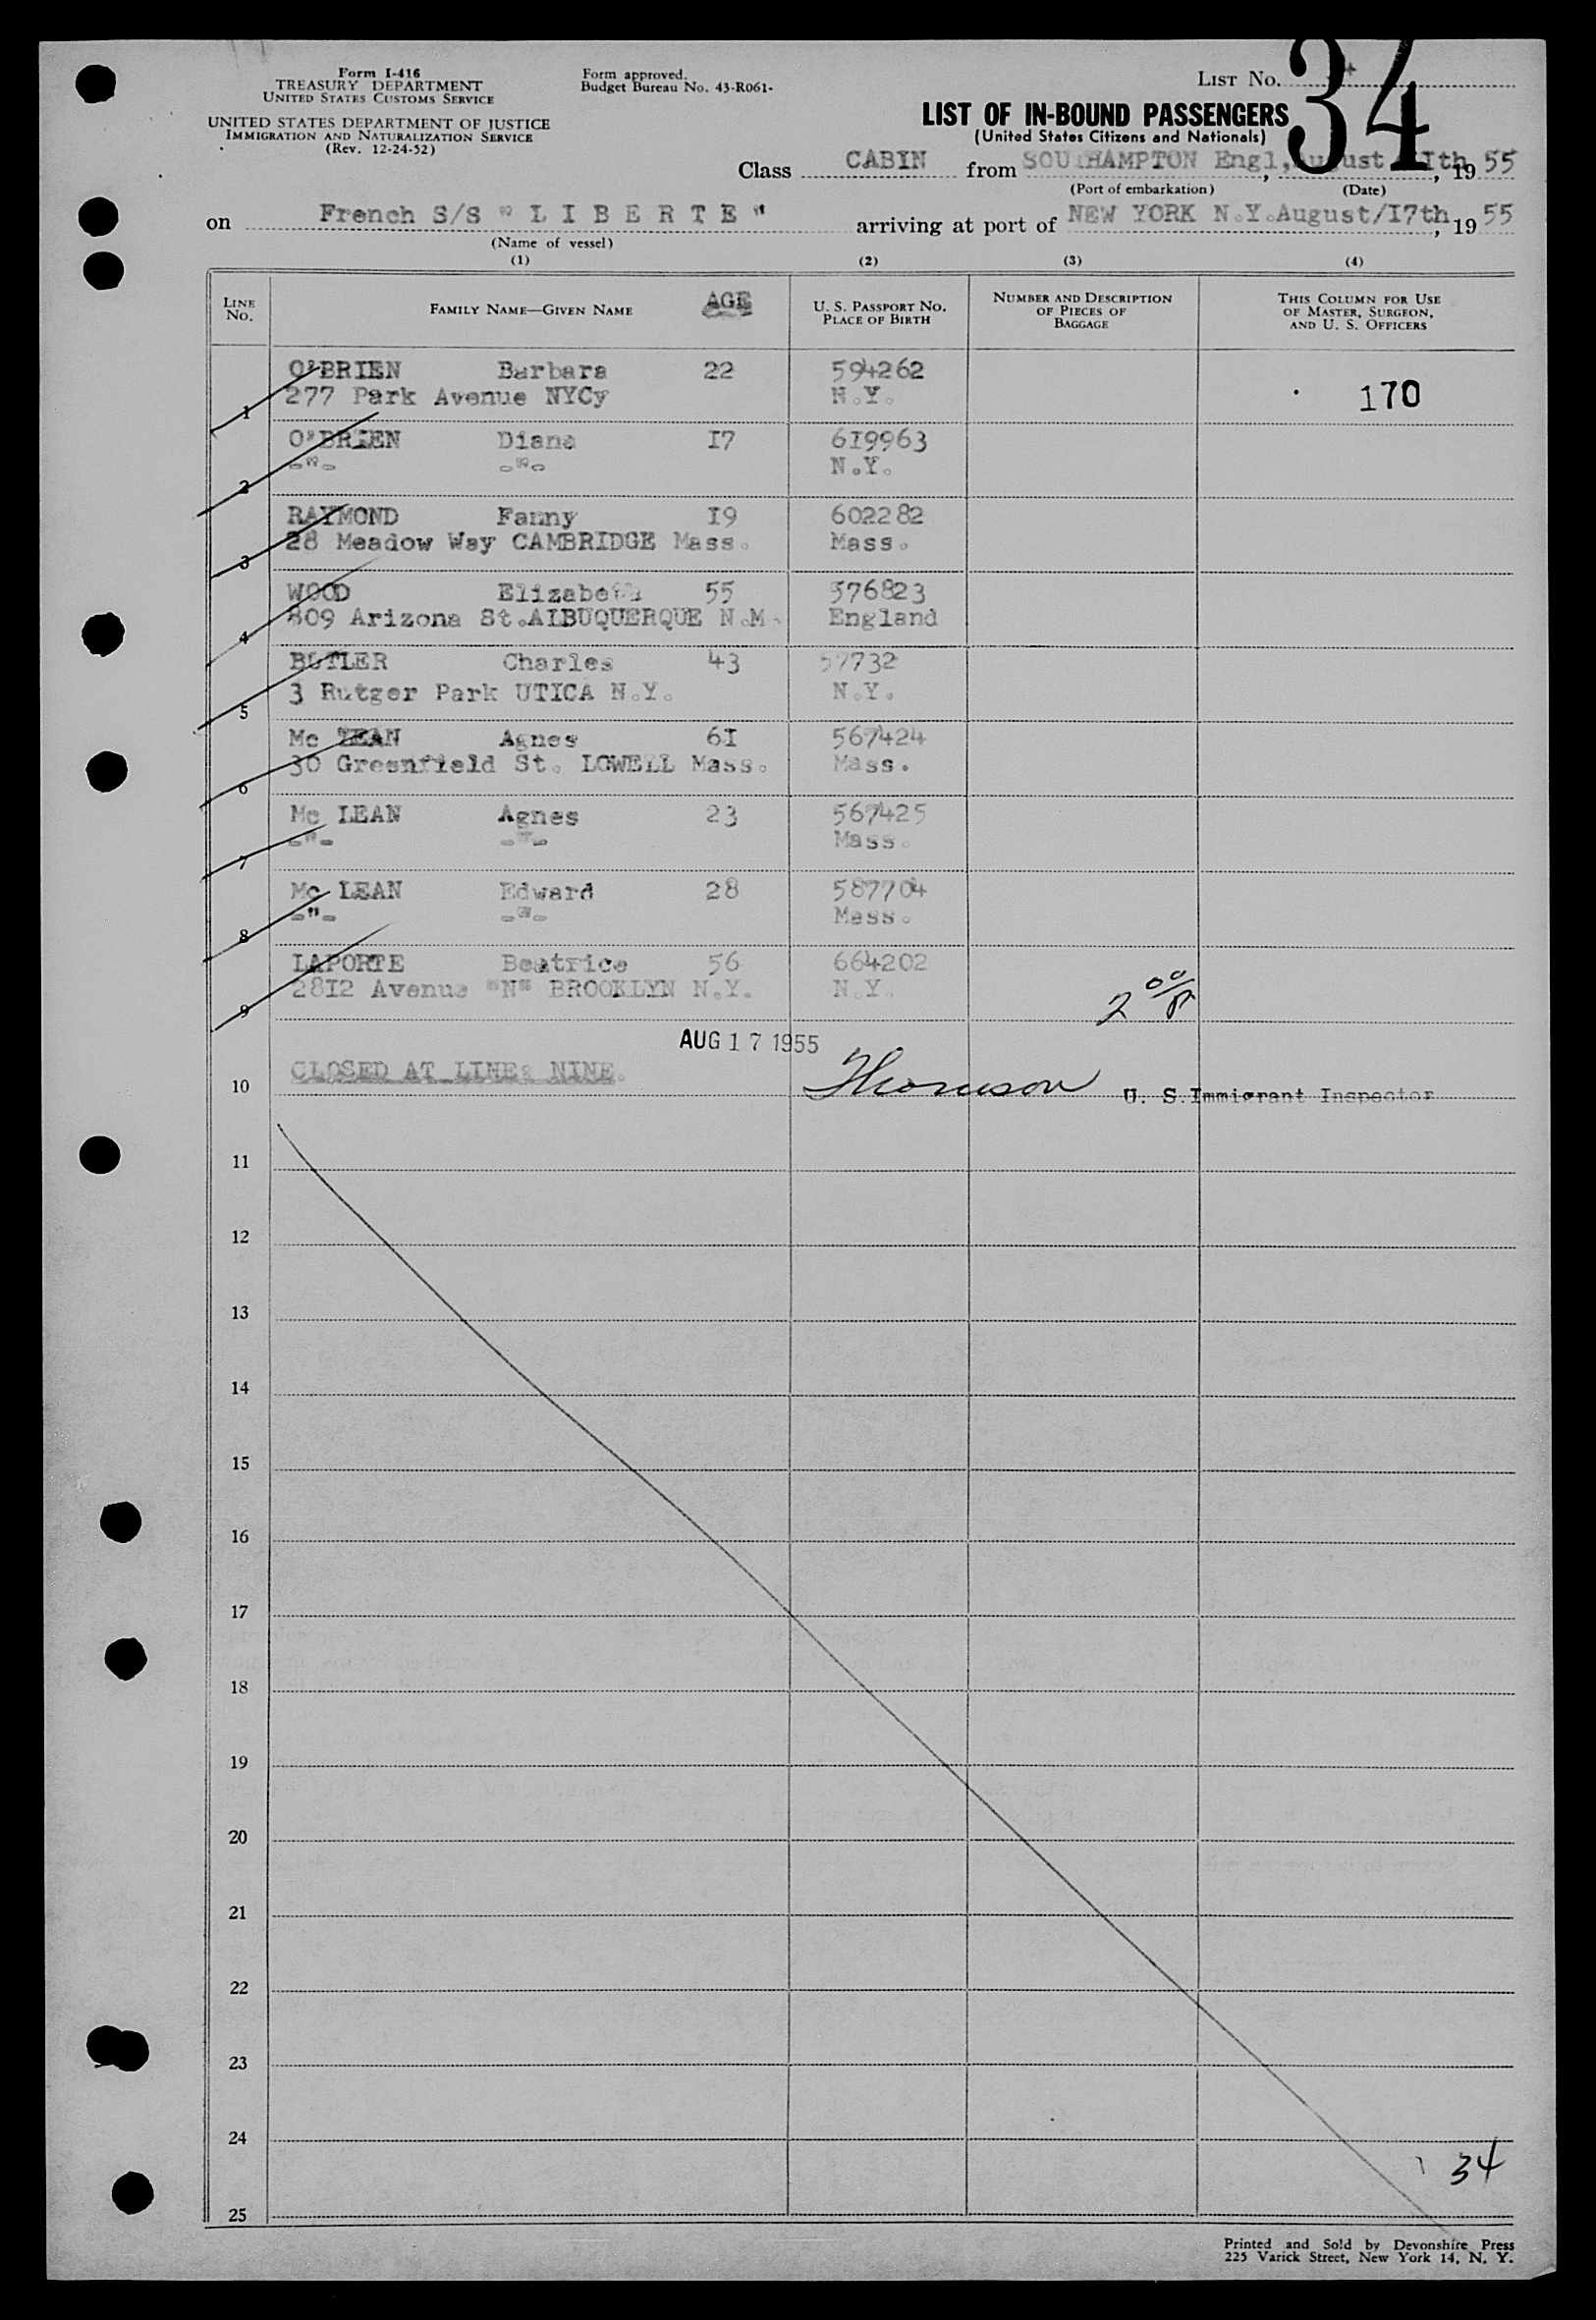 Form I-416
TREASURY DEPARTMENT
UNITED STATES CUSTOMS SERVICE
UNITED STATES DEPARTMENT OF JUSTICE
IMMIGRATION AND NATURALIZATION SERVICE
(Rev. 12-24-52)
Form approved.
Budget Bureau No. 43-R061-
LIST No. 34
LIST OF IN-BOUND PASSENGERS
(United States Citizens and Nationals)
Class CABIN from SOUTHAMPTON Engl, August, 19 55
(Port of embarkation) (Date)
on French S/S "L I B E R T E" arriving at port of NEW YORK N.Y. August/I7th, 19 55
(Name of vessel)
(1) (2) (3) (4)
LINE No. FAMILY NAME—GIVEN NAME AGE U. S. PASSPORT NO. PLACE OF BIRTH NUMBER AND DESCRIPTION OF PIECES OF BAGGAGE THIS COLUMN FOR USE OF MASTER, SURGEON, AND U. S. OFFICERS
1 O'BRIEN Barbara 22 594262
277 Park Avenue NYCy N.Y. 170
2 O'BRIEN Diana I7 6I9963
-"- -"- N.Y.
3 RAYMOND Fanny I9 602282
28 Meadow Way CAMBRIDGE Mass. Mass.
4 WOOD Elizabeth 55 576823
809 Arizona St. ALBUQUERQUE N.M. England
5 BUTLER Charles 43 57732
3 Rutger Park UTICA N.Y. N.Y.
6 Mc LEAN Agnes 6I 567424
30 Greenfield St. LOWELL Mass. Mass.
7 Mc LEAN Agnes 23 567425
-"- -"- Mass.
8 Mc LEAN Edward 28 587704
-"- -"- Mass.
9 LAPORTE Beatrice 56 664202
28I2 Avenue "N" BROOKLYN N.Y. N.Y.
AUG 17 1955
10 CLOSED AT LINE: NINE. Thomson U. S. Immigrant Inspector
11
12
13
14
15
16
17
18
19
20
21
22
23
24
34
25
Printed and Sold by Devonshire Press
225 Varick Street, New York 14, N. Y.